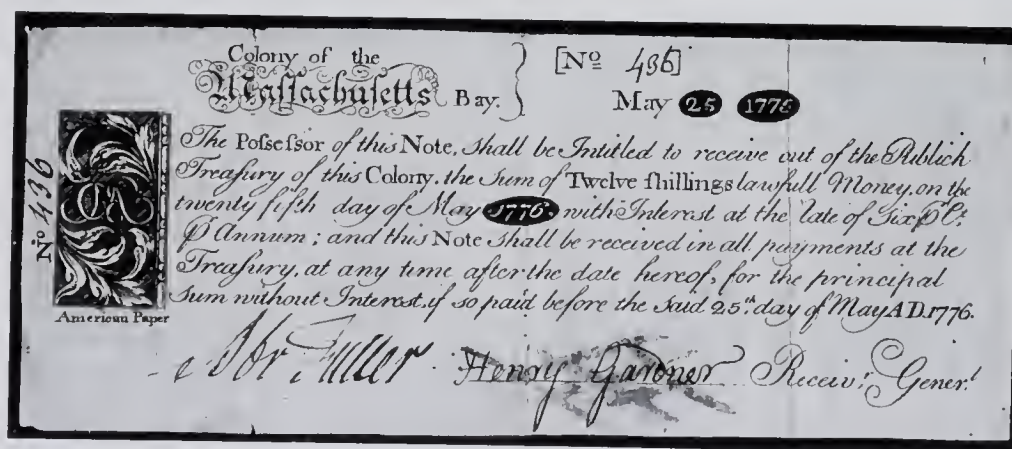 Colony of the
Massachusetts Bay.
[No 436]
May 25 1775
No 436
American Paper
The Possessor of this Note, shall be Intitled to receive out of the Publick
Treasury of this Colony, the Sum of Twelve shillings lawfull Money, on the
twenty fifth day of May 1776. with Interest at the late of Six Pr Ct.
Pr Annum; and this Note shall be received in all payments at the
Treasury, at any time after the date hereof, for the principal
Sum without Interest, if so paid before the said 25th day of May AD. 1776.
Abr Fuller Henry Gardner Receivr. Generl